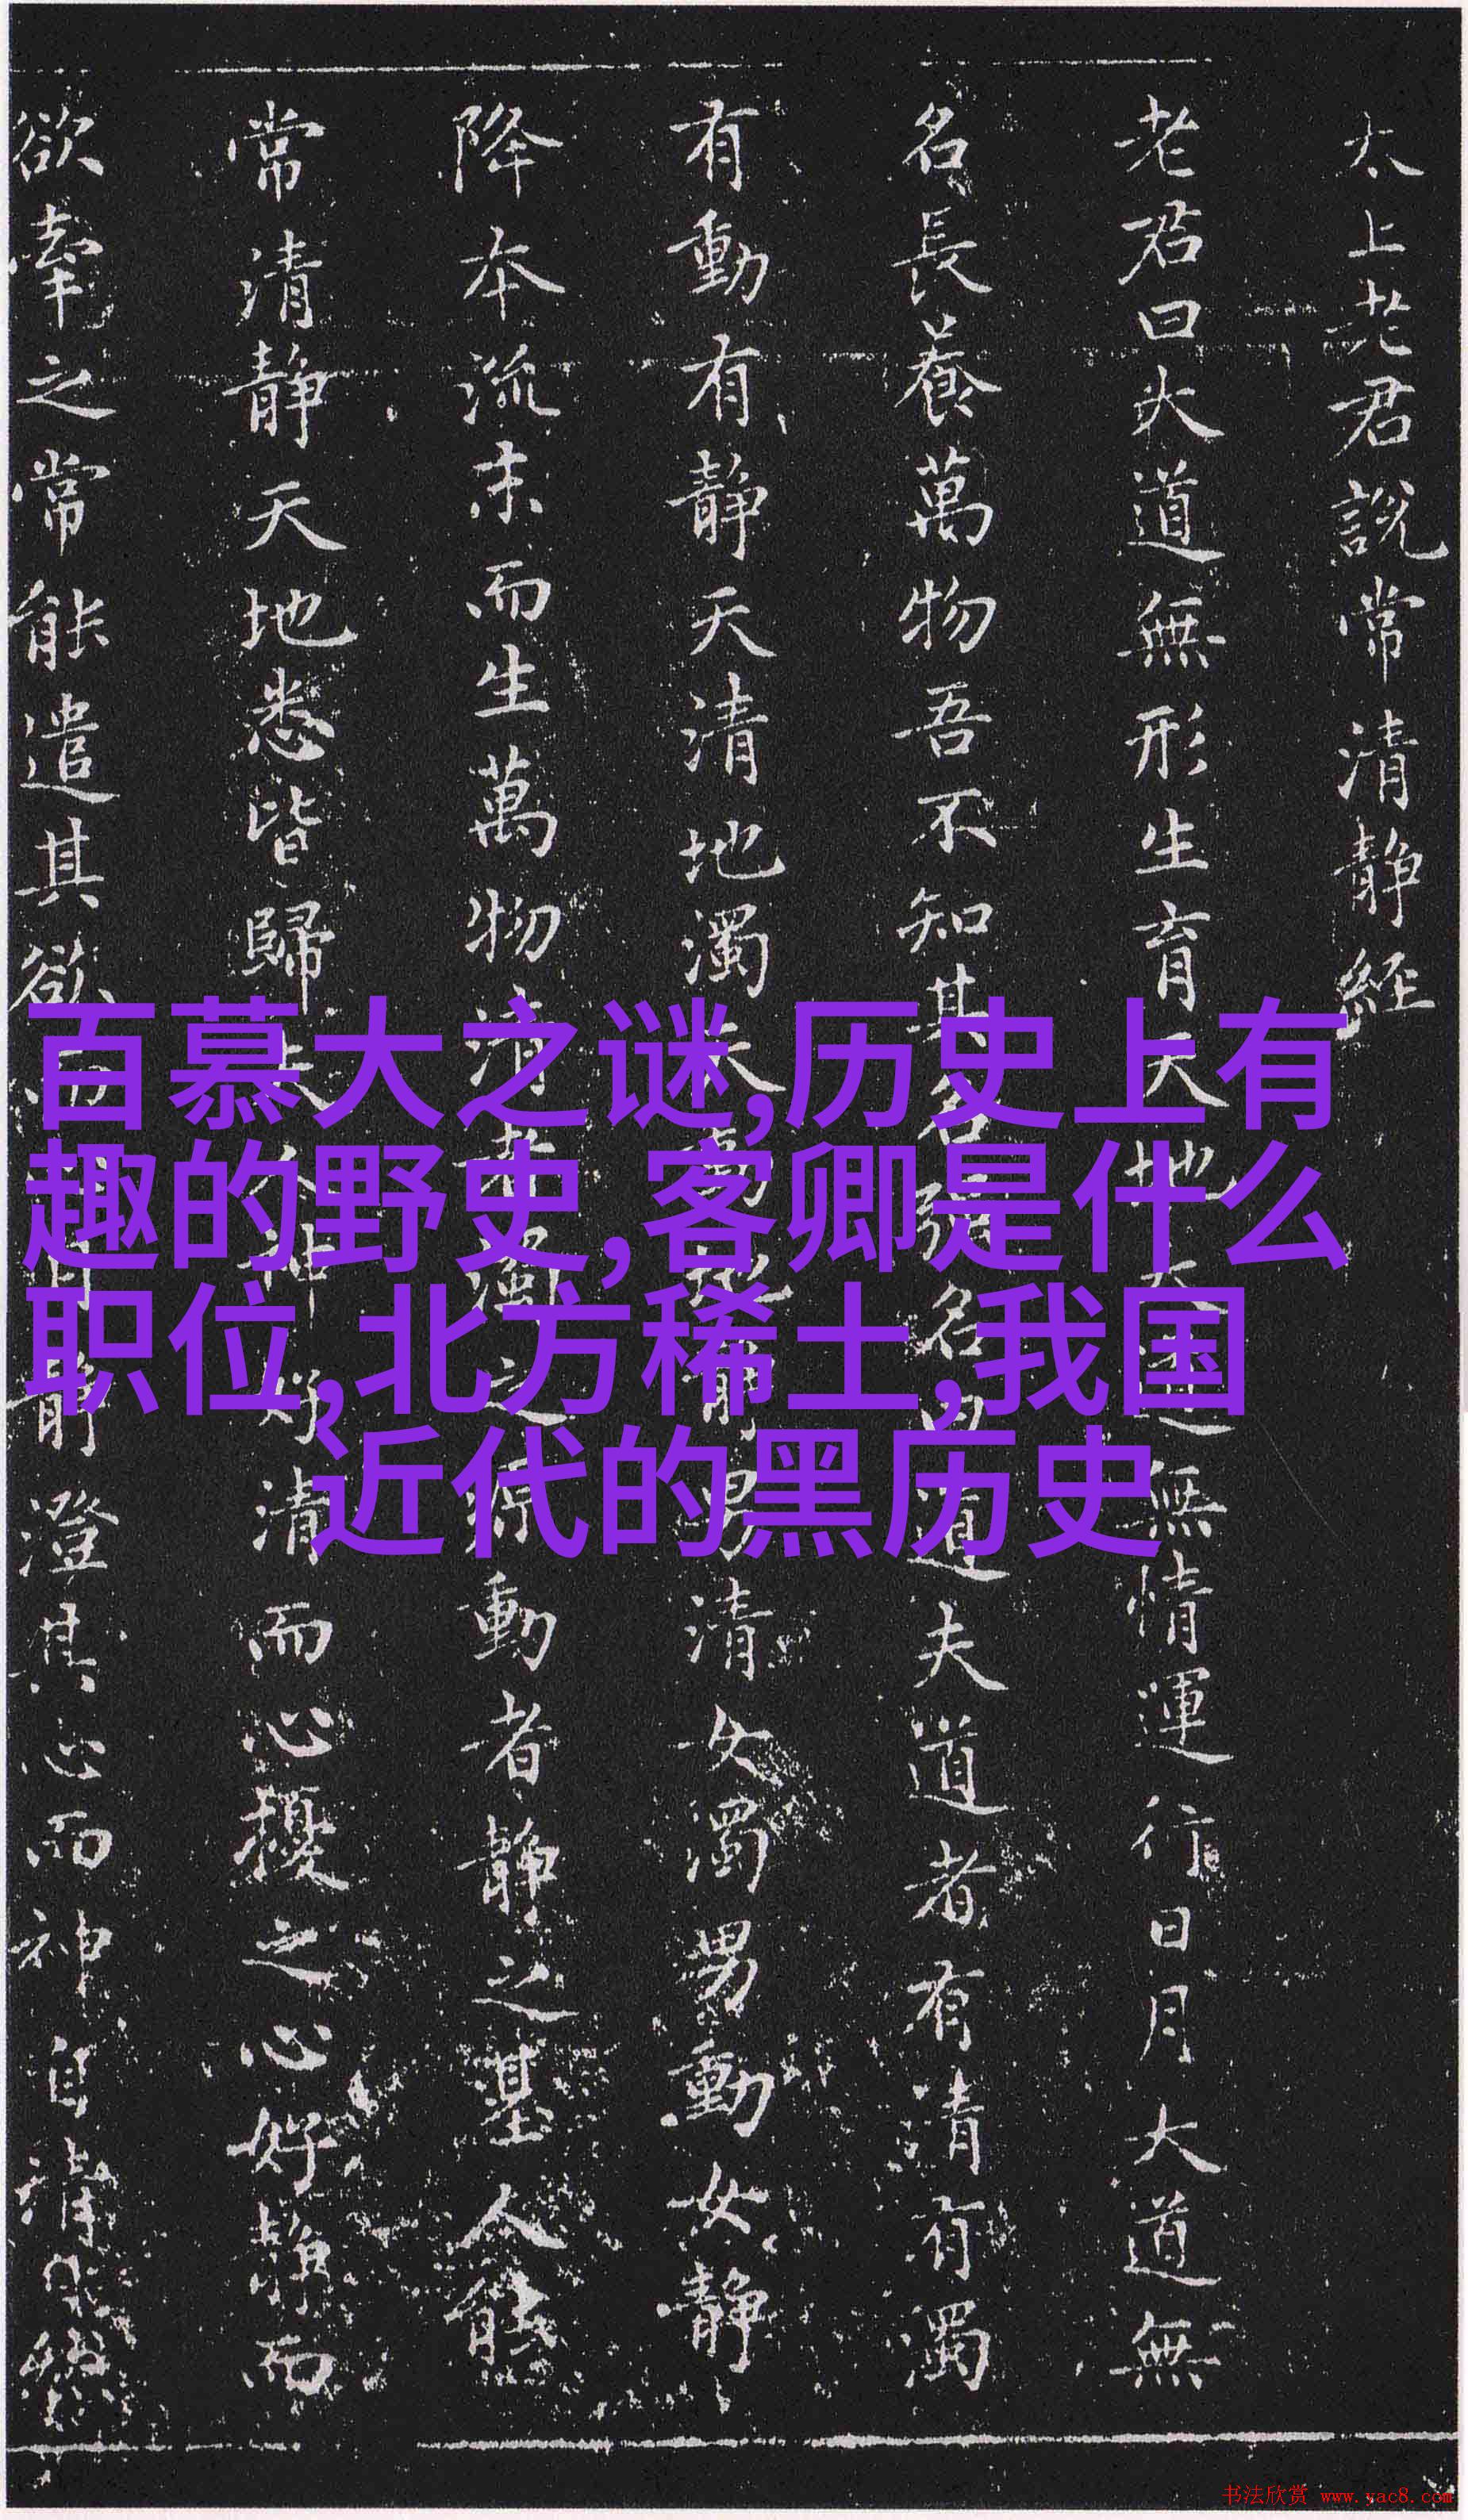 太上老君說常清静經
老君曰大道無形生育天地大道無情運行日月大道無
名長養萬物吾不知其名强名曰道夫道者有清有濁
有動有静天清地濁天地静男清女濁男動女静
降本流末而生萬物清者濁之源動者静之基人能
常清静天地悉皆歸夫人神好清而心擾之心好静而
欲牽之常能遣其欲而自静澄其心而神自清
百慕大之谜,历史上有
趣的野史,客卿是什么
职位,北方稀土,我国
近代的黑历史
书法欣赏 www.yac8.com